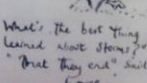 What's the best thing
learned about storms?"
"That they end" said